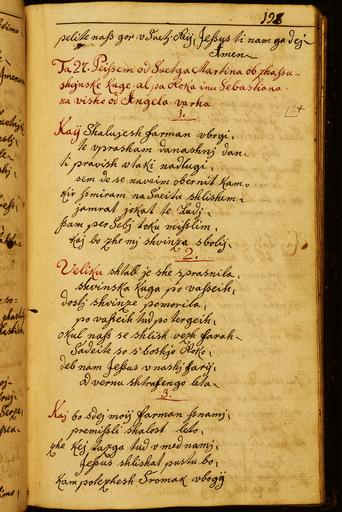 198
pelite nass gor v Svetj Rei, Jessus ti nam ga dej
Amen
Ta 24. Peissem od Svetga Martina ob zhassu
shvinske kuge, al pa Roka inu Sebastiana
na visho od Angela varha
1.
Kaj Shalujesh farman vbogi,
te vprasham danashnj dan,
ti pravish vtaki nadlugi,
sem de se naveim obernit kam,
kir smiram na Sveitu shlishim,
jamrat jokat te Ludj,
sam per sebj toku mislim,
kaj bo zhe mj shvinza sbolij
2.
Veliku shtall je she sprasnila,
shvinska kuga po vasseih,
dostj shvinze pomorila,
po vasseih tud po tergeih,
okul nass se shlish vezh farah
Sadeite so s boshjo Roko,
deb nam Jessus v nastj farij,
Odvernu shtrafengo leta
3.
Kaj bo sdej moij farman ssnamj,
premissli shalost leto,
zhe kej tazga tud vmed namj,
Jessus shlishat pustu bo,
kam potezhesh Sromak vbogij